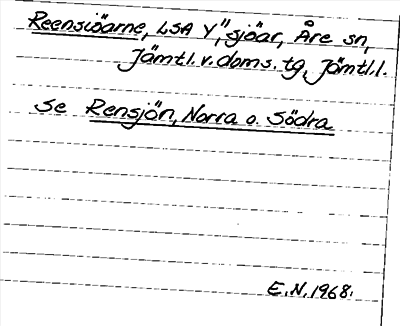 Reensiöarne, LSA Y", sjöar, Åre sn,
Jämtl. v. doms. tg, Jämtl. l.
Se Rensjön, Norra o. Södra
E.N. 1968.